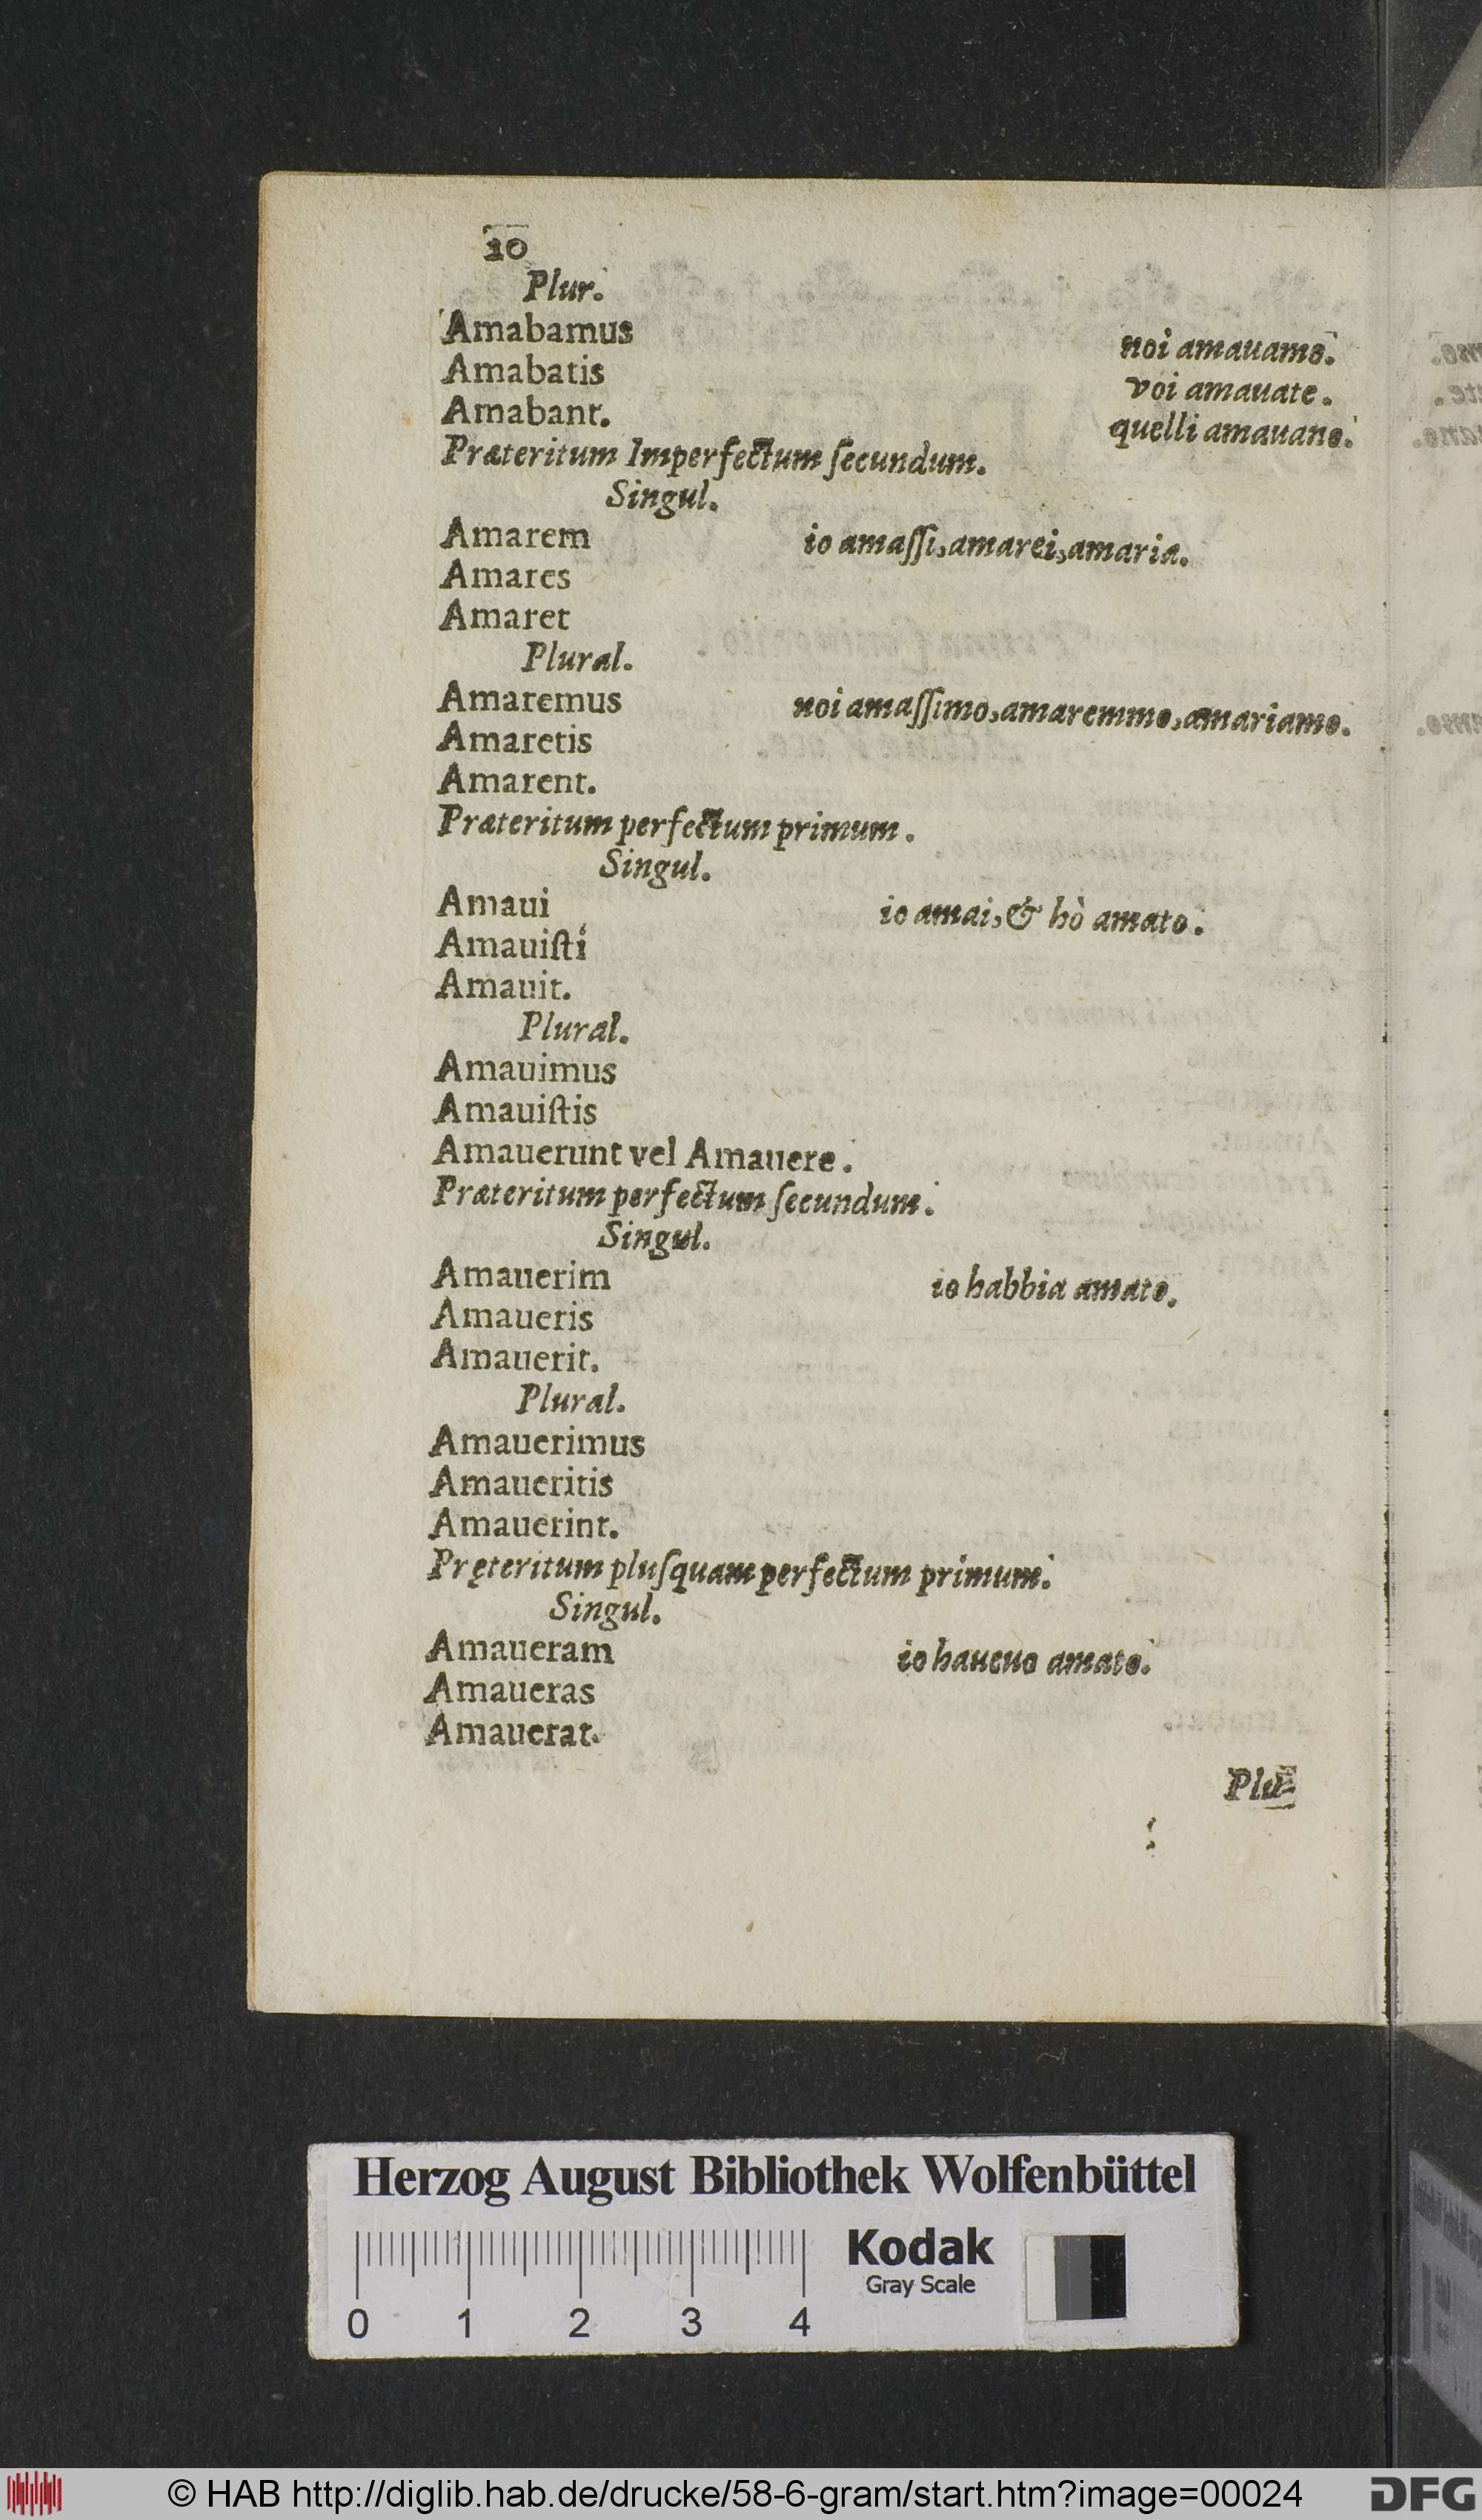 10
Plur.
Amabamus noi amauamo.
Amabatis voi amauate.
Amabant. quelli amauano.
Præteritum Imperfectum ſecundum.
Singul.
Amarem io amaſſi, amarei, amaria.
Amares
Amaret
Plural.
Amaremus noi amaſſimo, amaremmo, amariamo.
Amaretis
Amarent.
Præteritum perfectum primum.
Singul.
Amaui io amai, & hò amato.
Amauiſti
Amauit.
Plural.
Amauimus
Amauiſtis
Amauerunt vel Amauere.
Præteritum perfectum ſecundum.
Singul.
Amauerim io habbia amato.
Amaueris
Amauerit.
Plural.
Amauerimus
Amaueritis
Amauerint.
Pręteritum pluſquam perfectum primum.
Singul.
Amaueram io haueuo amato.
Amaueras
Amauerat.
Plu-
Herzog August Bibliothek Wolfenbüttel
Kodak
Gray Scale
0 1 2 3 4
© HAB http://diglib.hab.de/drucke/58-6-gram/start.htm?image=00024
DFG